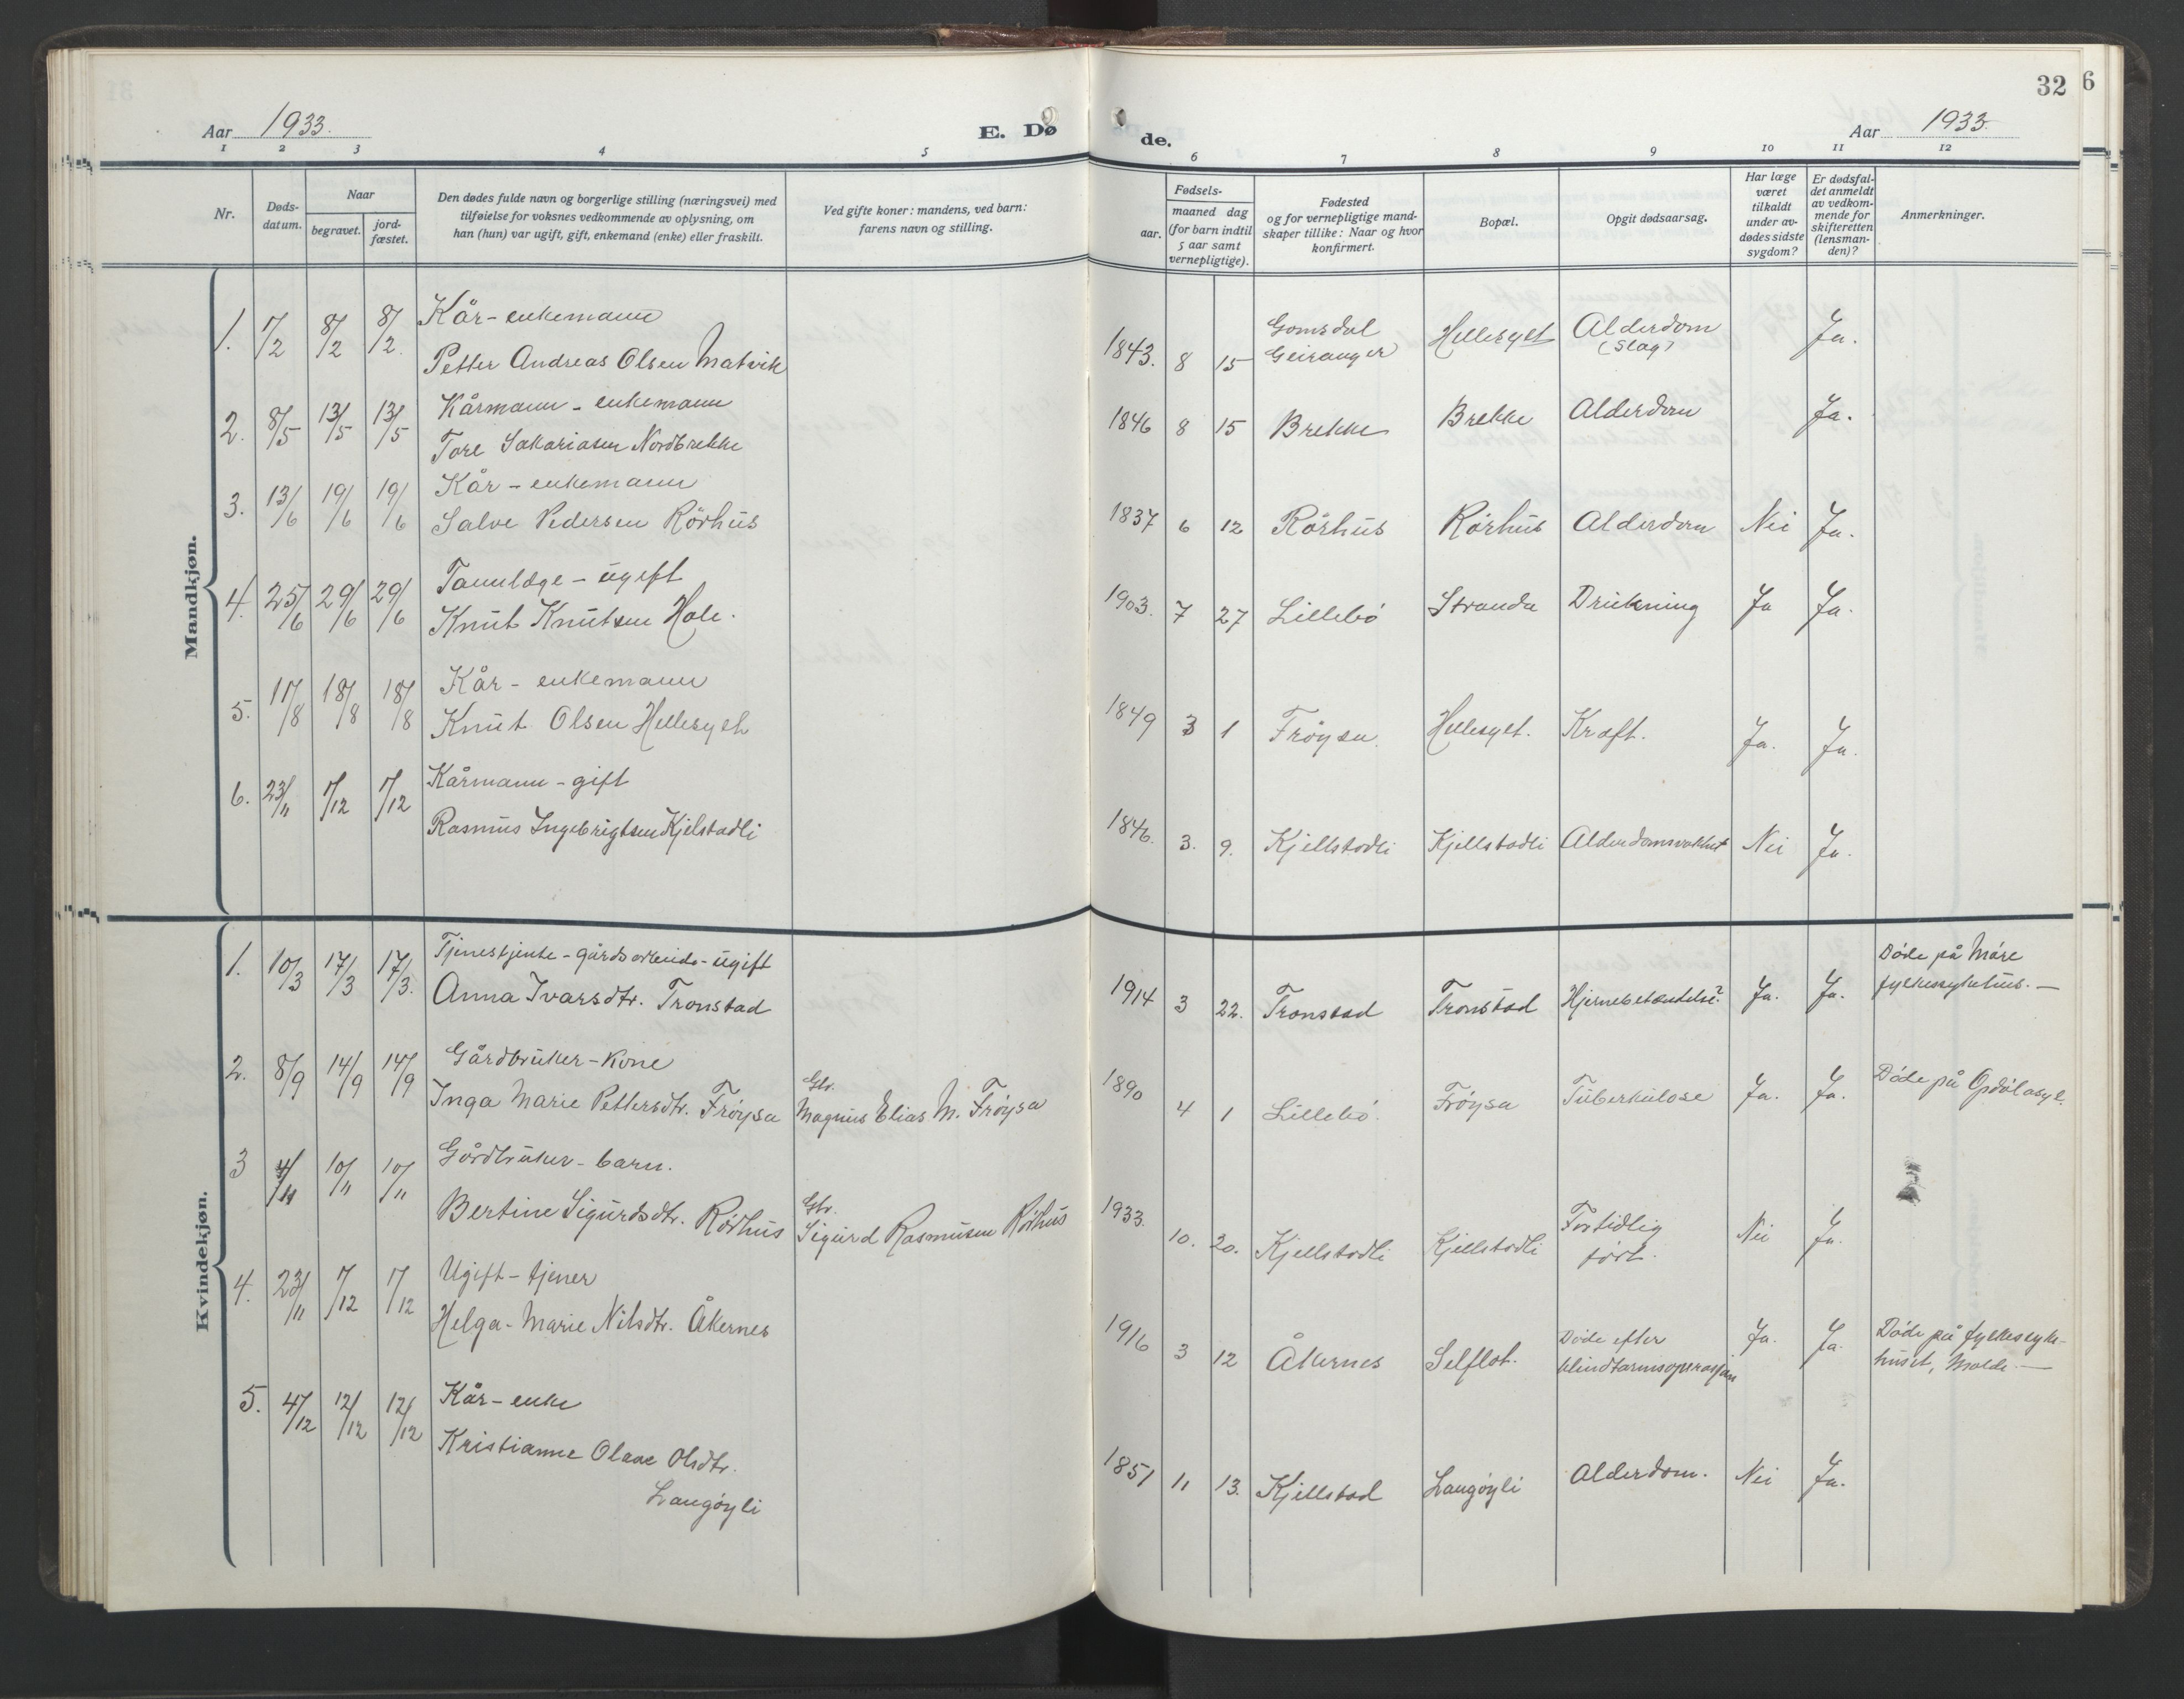 32 6
Aar 1933.
E. Dø
de.
Aar 1933.
1 2 3 4 5 6 7 8 9 10 11 12
Nr.
Døds-
datum.
Naar
begravet.
jord-
fæstet.
Den dødes fulde navn og borgerlige stilling (næringsvei) med
tilføielse for voksnes vedkommende av oplysning, om
han (hun) var ugift, gift, enkemand (enke) eller fraskilt.
Ved gifte koner: mandens, ved barn:
farens navn og stilling.
Fødsels-
aar.
maaned dag
(for barn indtil
5 aar samt
vernepligtige).
Fødested
og for vernepligtige mand-
skaper tillike: Naar og hvor
konfirmert.
Bopæl.
Opgit dødsaarsag.
Har læge
været
tilkaldt
under av-
dødes sidste
sygdom?
Er dødsfal-
det anmeldt
av vedkom-
mende for
skifteretten
(lensman-
den)?
Anmerkninger.
Mandkjøn.
1. 7/2 8/2 8/2. Kår-enkemann
Petter Andreas Olsen Matvik
1843. 8 15 Gomsdal
Geiranger
Hellesylt Alderdom
(Slag)
Ja.
2. 8/5 13/5 13/5 Kårmann - enkemann
Tore Sakariasen Nordbrekke
1846 8 15 Brekke Brekke Alderdom Ja.
3. 13/6 19/6 19/6 Kår - enkemann
Salve Pedersen Rörhus
1837 6 12 Rörhus Rörhus Alderdom Nei Ja.
4. 25/6 29/6 29/6 Tannlæge - ugift
Knut Knutsen Hole.
1903. 7 27 Lillebö Stranda Drukning Ja Ja.
5. 17/8 18/8 18/8 Kår - enkemann
Knut Olsen Hellesylt
1849 3 1 Fröysa. Hellesylt. Kræft. Ja. Ja.
6. 23/11 7/12 7/12 Kårmann - gift
Rasmus Ingebrigtsen Kjelstadli
1846. 3. 9. Kjellstadli Kjellstadli Alderdomsvakhet Nei Ja.
Kvindekjøn.
1. 10/3 17/3 17/3. Tjenestjente - gårdsarbeide - ugift
Anna Ivarsdtr. Tronstad
1914 3 22. Tronstad Tronstad Hjernebetændelse? Ja. Ja. Döde på Möre
fylkessykehus. —
2. 8/9 14/9 14/9 Gårdbruker - Kone
Inga Marie Pettersdtr. Fröysa
Gbr.
Magnus Elias M. Fröysa
1890 4 1 Lillebö. Fröysa Tüberkulose Ja. Ja. Döde på Opdölasyl.
3 4/11 10/11 10/11 Gårdbruker - barn.
Bertine Sigurdsdtr. Rörhus
Gbr.
Sigurd Rasmusen Rörhus
1933. 10. 20. Kjellstadli Kjellstadli For tidlig
födt.
Nei Ja.
4. 23/11 7/12 7/12 Ugift - tjener
Helga - Marie Nilsdtr. Åkernes
1916 3 12 Åkernes Selflot. Döde efter
blindtarmsoperasjon
Ja. Ja. Döde på fylkessyke-
huset, Molde. —
5. 4/12 12/12 12/12 Kår - enke
Kristianne Olave Olsdtr.
Langöyli
1851 11 13. Kjellstad Langöyli Alderdom. Nei Ja.